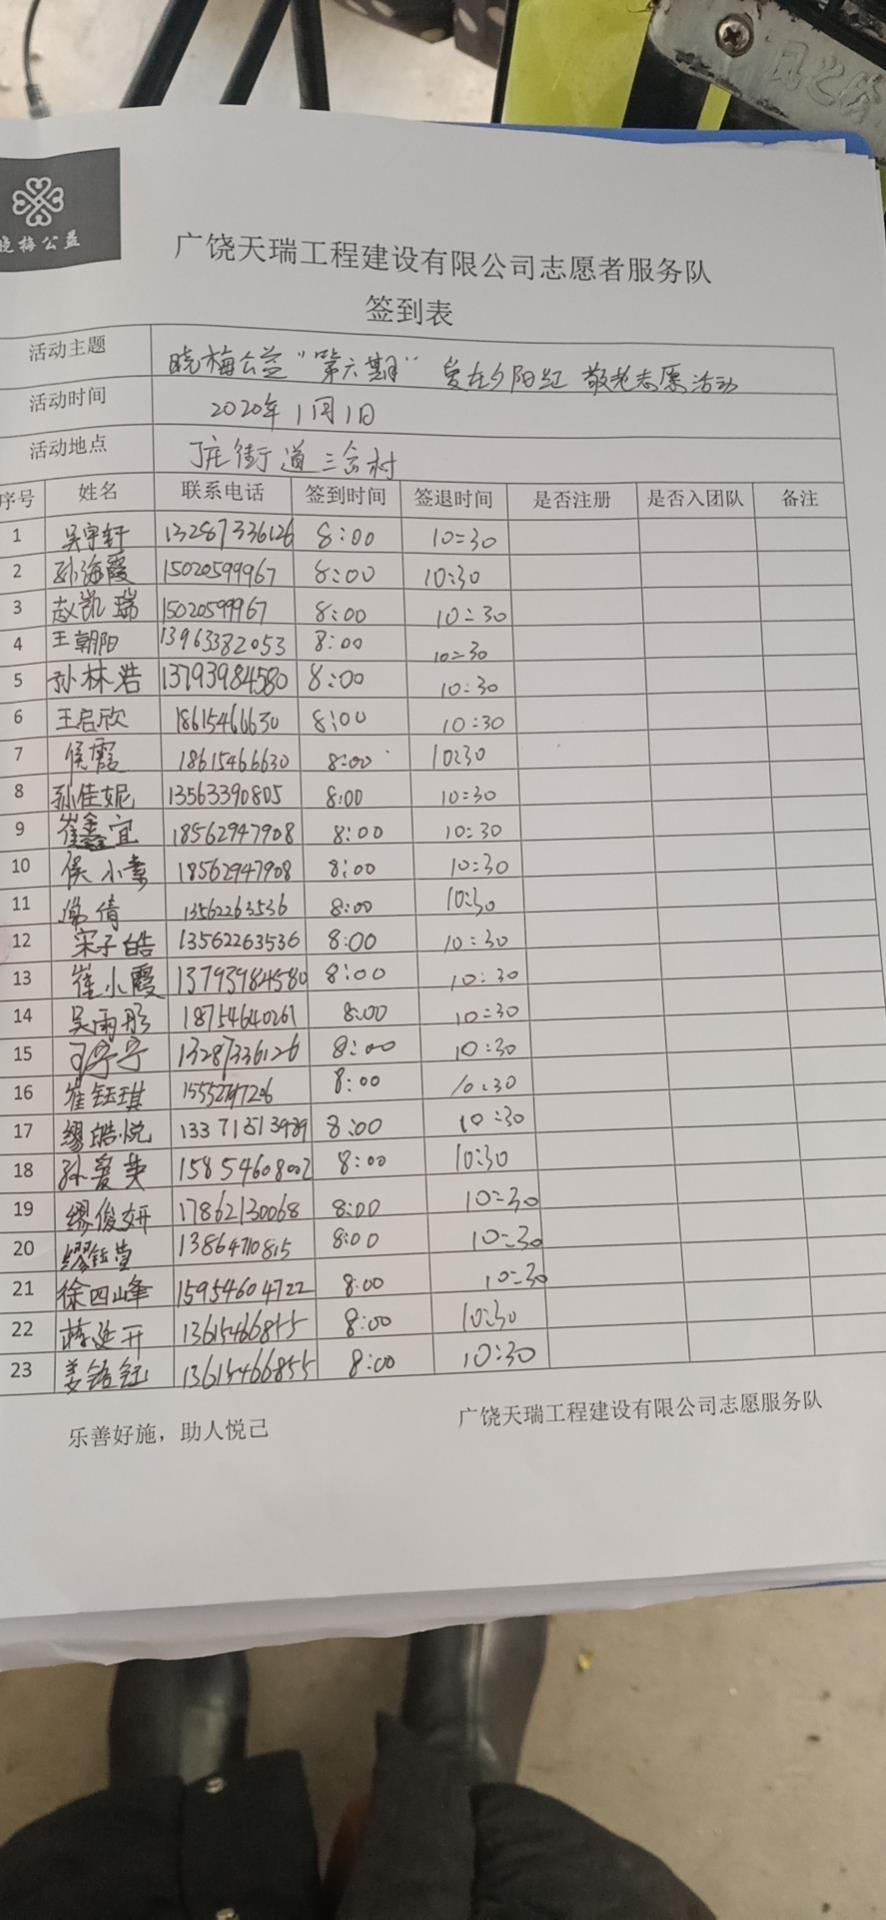 晓梅公益
广饶天瑞工程建设有限公司志愿者服务队
签到表
活动主题 晓梅公益“第六期” 爱在夕阳红 敬老志愿活动
活动时间 2020年1月1日
活动地点 丁庄街道三合村
序号 姓名 联系电话 签到时间 签退时间 是否注册 是否入团队 备注
1 吴宇轩 13287336126 8:00 10:30
2 孙海霞 15020599967 8:00 10:30
3 赵凯瑞 15020599967 8:00 10:30
4 王朝阳 13963382053 8:00 10:30
5 孙林浩 13793984580 8:00 10:30
6 王启欣 18615466630 8:00 10:30
7 侯霞 18615466630 8:00 10:30
8 孙佳妮 13563390805 8:00 10:30
9 崔鑫宜 18562947908 8:00 10:30
10 侯小素 18562947908 8:00 10:30
11 倩 13562263536 8:00 10:30
12 宋子皓 13562263536 8:00 10:30
13 崔小霞 13793984580 8:00 10:30
14 吴雨彤 18754640261 8:00 10:30
15 宁宁 13287336126 8:00 10:30
16 崔钰琪 8:00 10:30
17 缪皓悦 8:00 10:30
18 孙爱英 15854608002 8:00 10:30
19 缪俊妍 17862130068 8:00 10:30
20 缪钰萱 13864710815 8:00 10:30
21 徐四峰 15954604722 8:00 10:30
22 蒋延开 13615466855 8:00 10:30
23 姜铭钰 13615466855 8:00 10:30
乐善好施，助人悦己
广饶天瑞工程建设有限公司志愿服务队